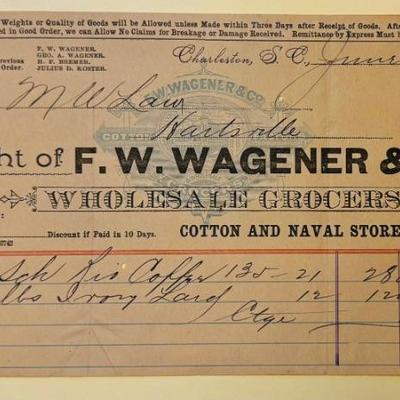 Weights or Quality of Goods will be Allowed unless Made within Three Days after Receipt of Goods. After
ed in Good Order, we can Allow No Claims for Breakage or Damage Received. Remittance by Express Must b
F. W. WAGENER.
GEO. A. WAGENER.
H. F. BREMER.
JULIUS D. KOSTER.
revious
Order.
Charleston, S. C., June
M W Law
F. W. WAGENER & CO.
COTTON
Hartsville
ht of F. W. WAGENER &
WHOLESALE GROCERS
Discount if Paid in 10 Days.
COTTON AND NAVAL STORE
Sck Rio Coffee 135 - 21 28
lbs Ivory Lard 12 12
Ctge